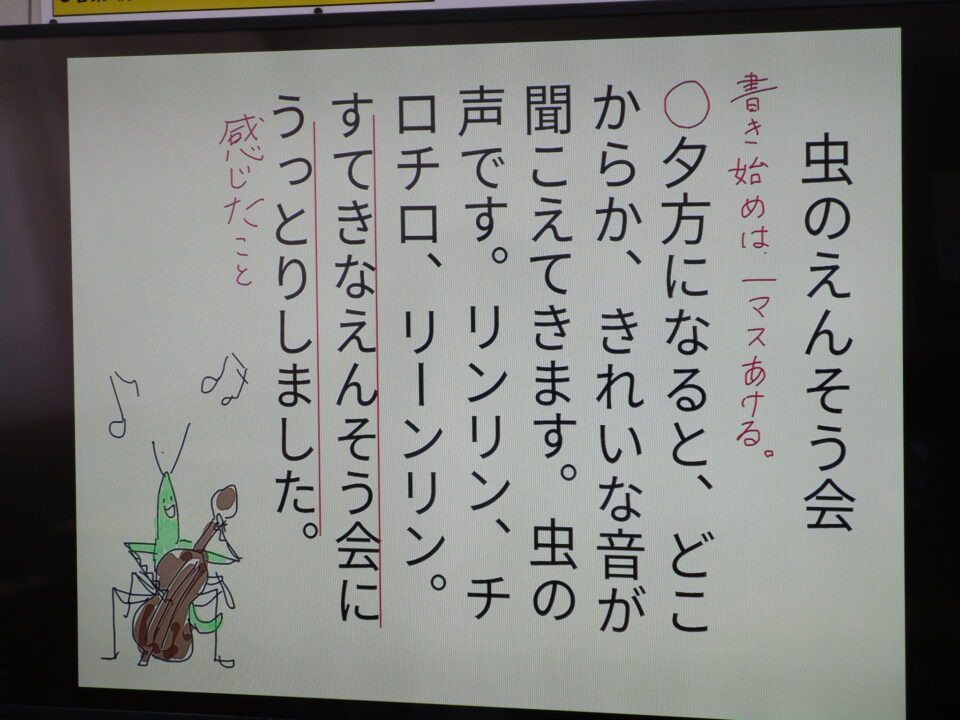 虫のえんそう会
書き始めは、一マスあける。
○夕方になると、どこ
からか、きれいな音が
聞こえてきます。虫の
声です。リンリン、チ
ロチロ、リーンリン。
すてきなえんそう会に
うっとりしました。
感じたこと